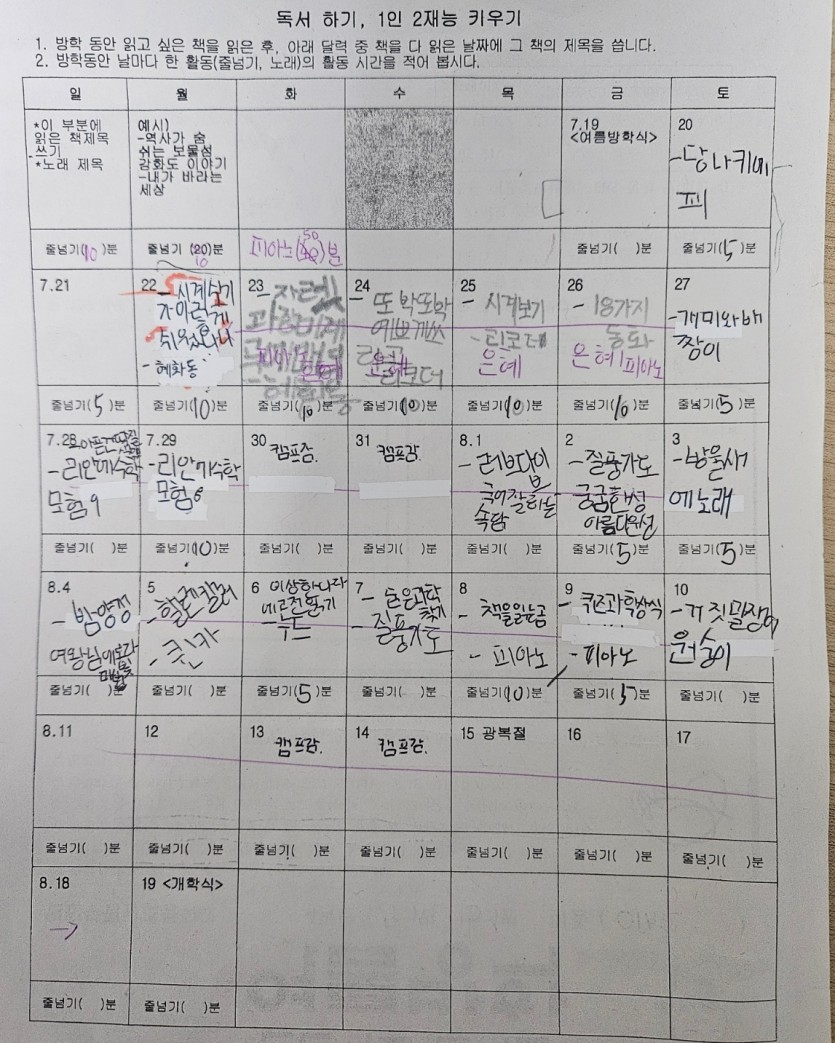 독서 하기, 1인 2재능 키우기
1. 방학 동안 읽고 싶은 책을 읽은 후, 아래 달력 중 책을 다 읽은 날짜에 그 책의 제목을 씁니다.
2. 방학동안 날마다 한 활동(줄넘기, 노래)의 활동 시간을 적어 봅시다.
일 월 화 수 목 금 토
*이 부분에
읽은 책제목
쓰기
*노래 제목
예시)
-역사가 숨
쉬는 보물섬
강화도 이야기
-내가 바라는
세상
7.19
<여름방학식>
20
-당나귀에
피
줄넘기(10)분 줄넘기 (20)분
10
피아노( )분
50
줄넘기( )분 줄넘기(5)분
7.21
22 - 시계보기
가 이렇게
쉬웠다니
- 혜화동
23 -
피아노
24 - 또박또박
예쁘게쓰
리코더
25
- 시계보기
- 리코더
은혜
26
- 18가지
동화
은혜 피아노
27
-개미와배
짱이
줄넘기(5)분 줄넘기(10)분 줄넘기(10)분 줄넘기(10)분 줄넘기(10)분 줄넘기(10)분 줄넘기(5)분
7.28
- 리안이수학
모험 9
7.29
-리안이수학
모험 8
30
캠프감.
31
캠프감.
8.1
- 레브다이브
국어잘하는
속담
2
- 질풍가도
궁금한성
아름다운성
3
-방울새
에노래
줄넘기( )분 줄넘기(10)분 줄넘기( )분 줄넘기( )분 줄넘기( )분 줄넘기(5)분 줄넘기(5)분
8.4
- 밤양갱
여왕님
5
- 헬렌켈러
- 퀸카
6 이상하나라
누드
7
- 숨은과학
찾기
- 질풍가도
8
- 책을읽는곰
- 피아노
9
- 퀴즈과학상식
- 피아노
10
-거짓말쟁이
원숭이
줄넘기( )분 줄넘기( )분 줄넘기(5)분 줄넘기( )분 줄넘기(10)분 줄넘기(5)분 줄넘기( )분
8.11 12 13 캠프감. 14 캠프감. 15 광복절 16 17
줄넘기( )분 줄넘기( )분 줄넘기( )분 줄넘기( )분 줄넘기( )분 줄넘기( )분 줄넘기( )분
8.18 19 <개학식>
→
줄넘기( )분 줄넘기( )분